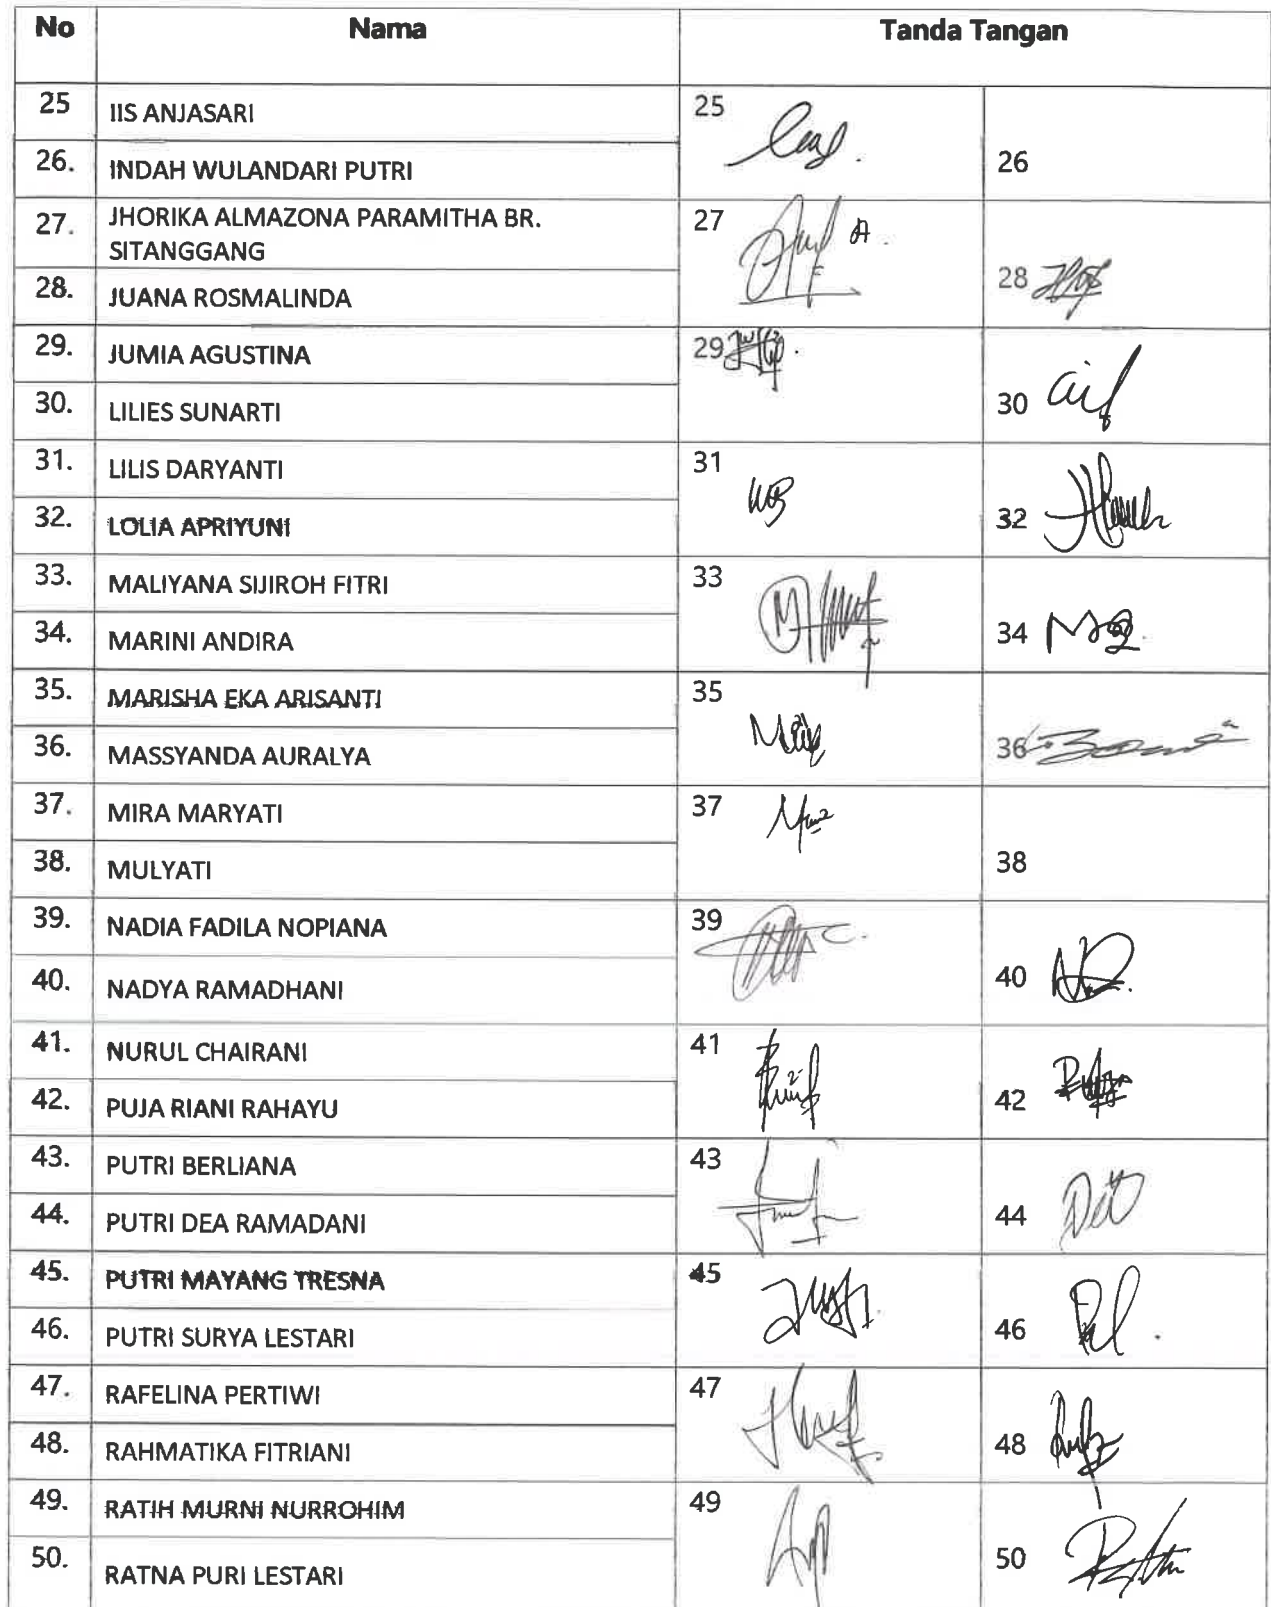 No Nama Tanda Tangan
25 IIS ANJASARI 25
26. INDAH WULANDARI PUTRI 26
27. JHORIKA ALMAZONA PARAMITHA BR. 27
SITANGGANG
28. JUANA ROSMALINDA 28
29. JUMIA AGUSTINA 29
30. LILIES SUNARTI 30
31. LILIS DARYANTI 31
32. LOLIA APRIYUNI 32
33. MALIYANA SIJIROH FITRI 33
34. MARINI ANDIRA 34
35. MARISHA EKA ARISANTI 35
36. MASSYANDA AURALYA 36
37. MIRA MARYATI 37
38. MULYATI 38
39. NADIA FADILA NOPIANA 39
40. NADYA RAMADHANI 40
41. NURUL CHAIRANI 41
42. PUJA RIANI RAHAYU 42
43. PUTRI BERLIANA 43
44. PUTRI DEA RAMADANI 44
45. PUTRI MAYANG TRESNA 45
46. PUTRI SURYA LESTARI 46
47. RAFELINA PERTIWI 47
48. RAHMATIKA FITRIANI 48
49. RATIH MURNI NURROHIM 49
50. RATNA PURI LESTARI 50